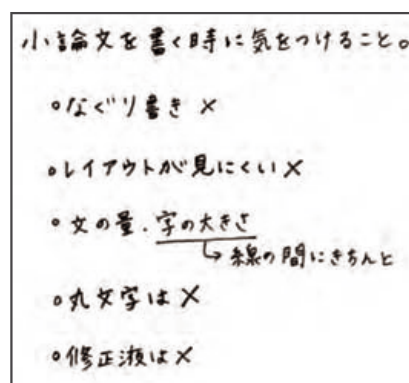 小論文を書く時に気をつけること。
○なぐり書き ×
○レイアウトが見にくい×
○文の量.字の大きさ
↳線の間にきちんと
○丸文字は×
○修正液は×